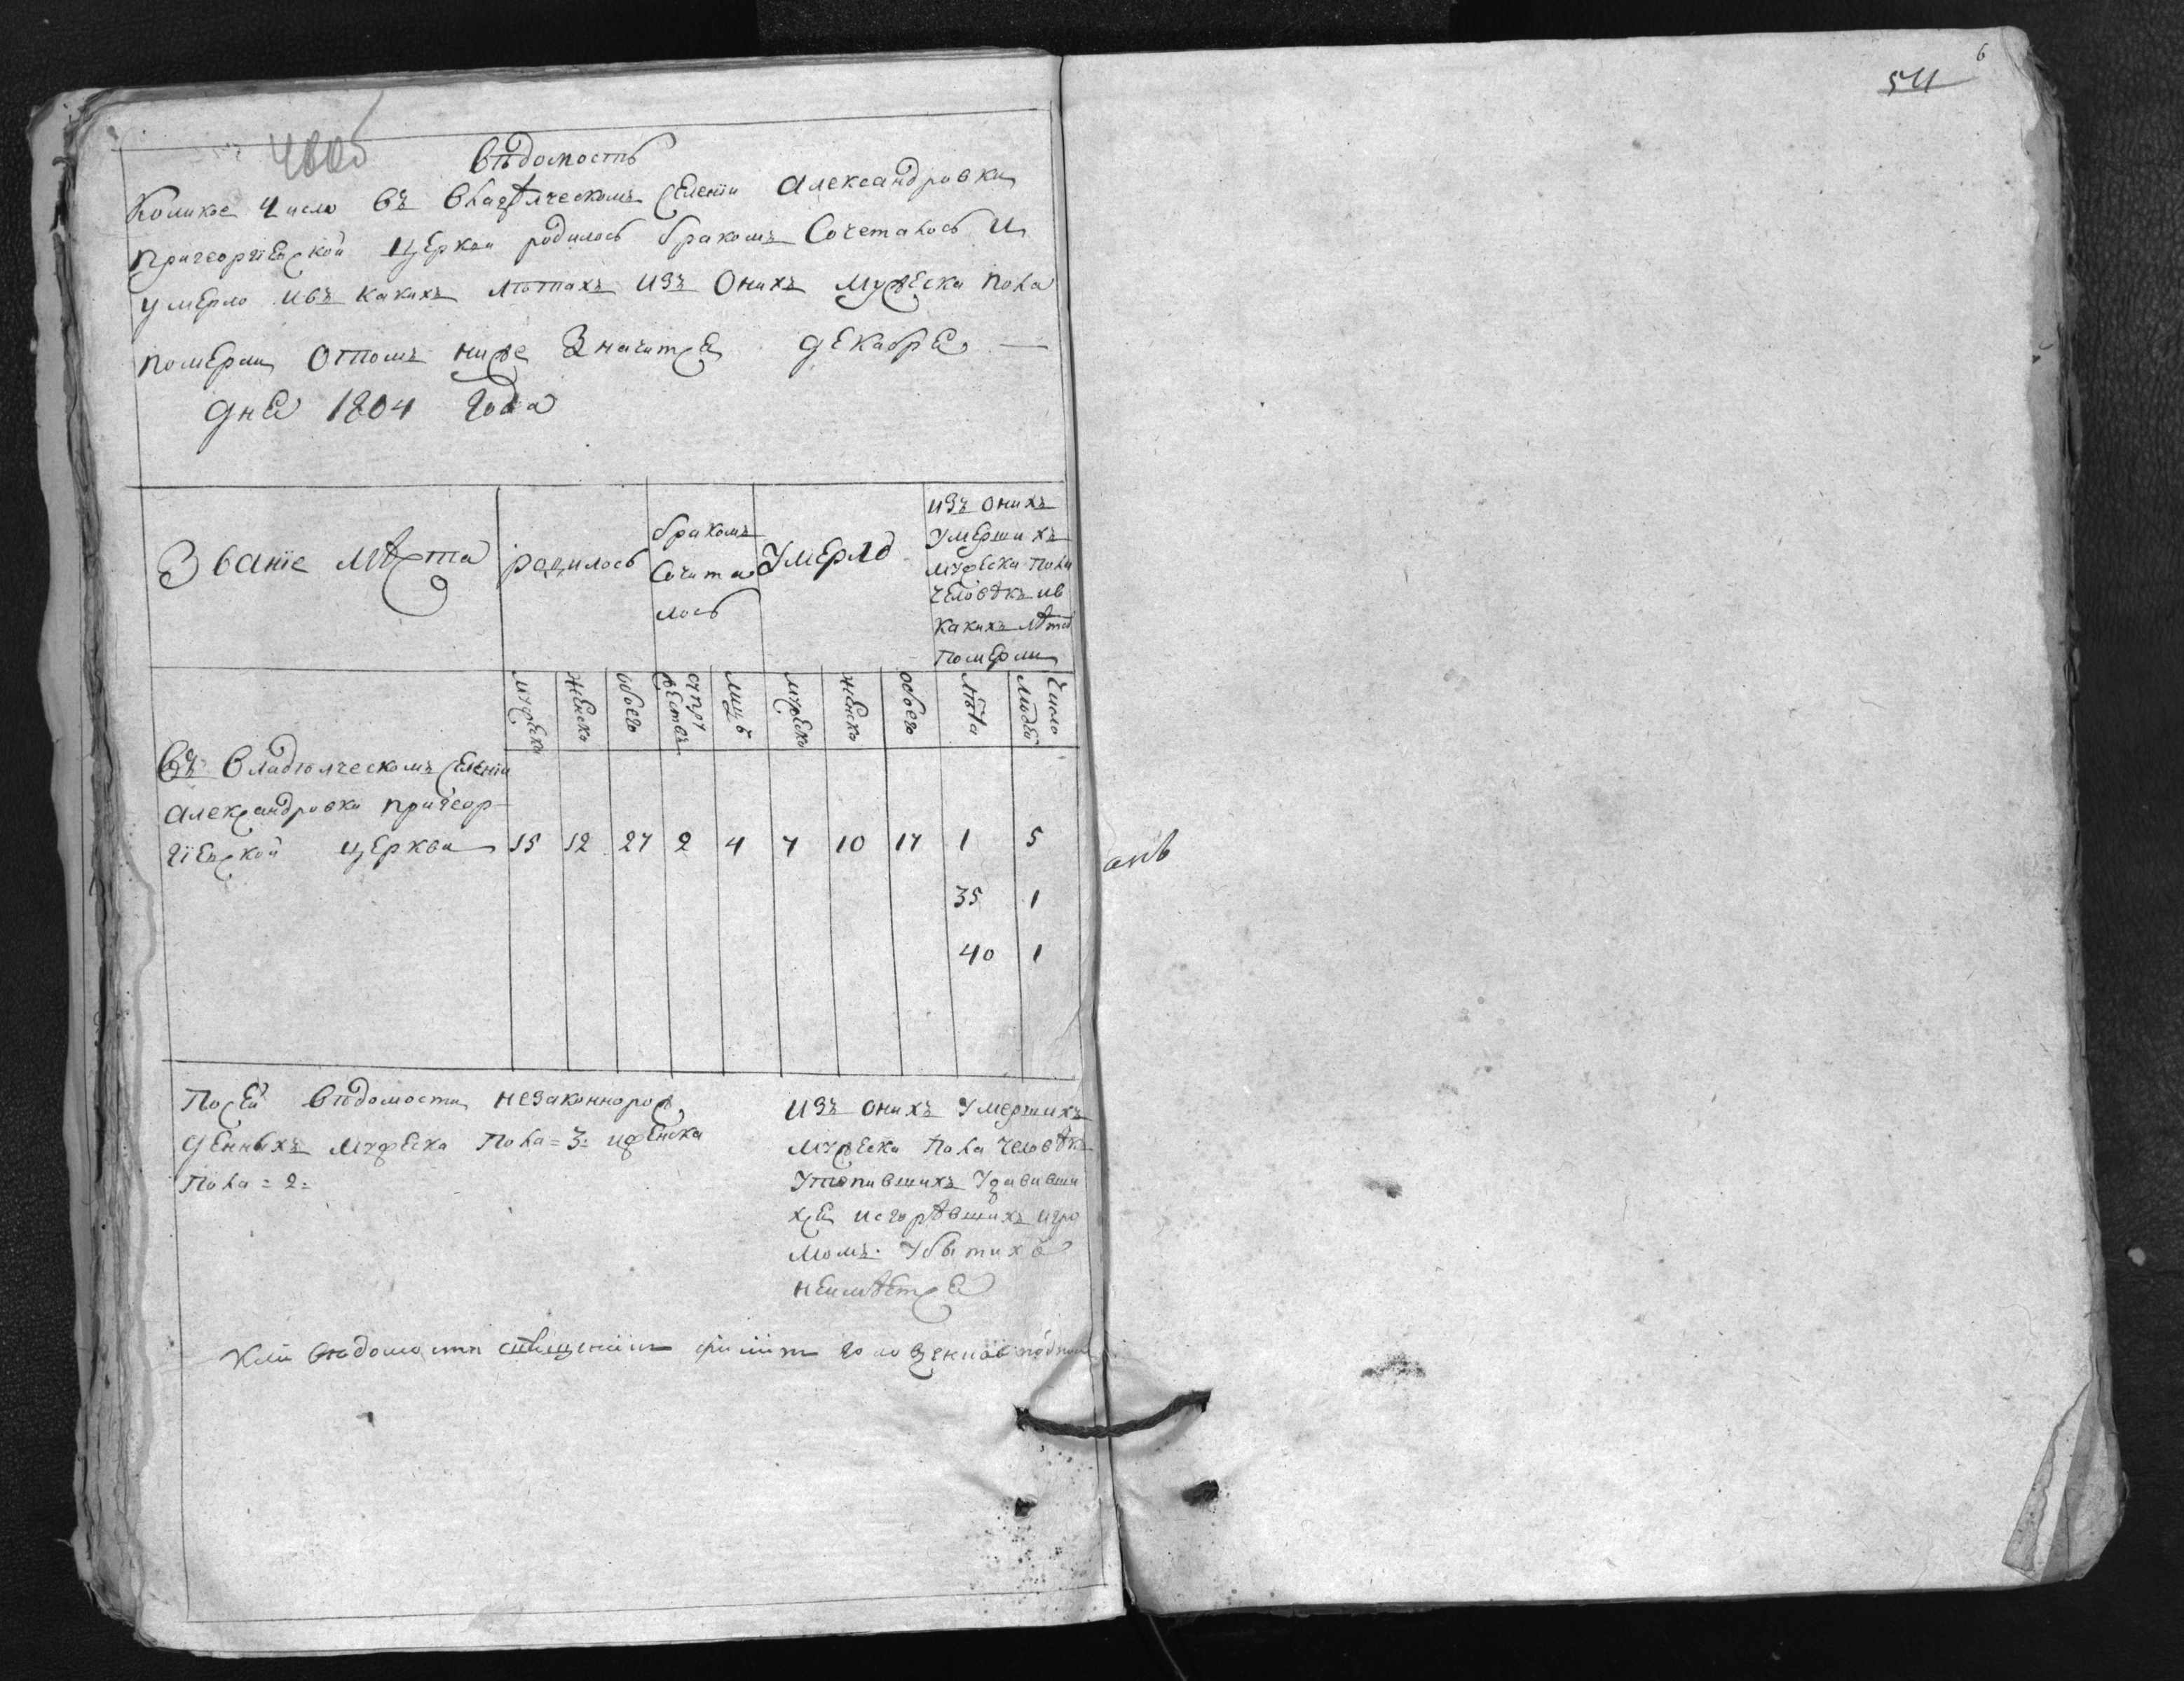 6
54
Вѣдомость
Коликое число въ владѣлческомъ селеніи Александровки
пригеоргіевской церкви родилось бракомъ сочеталось и
умерло ивъ какихъ лѣтахъ изъ онихъ мужеска пола
померли отомъ ниже значится декабря —
дня 1804 года
Званіе мѣста
родилось
бракомъ
сочита
лось
умерло
изъ онихъ
умершихъ
мужеска пола
человѣкъ ив
какихъ лѣтах
померли
мужеска
женско
обоего
супру
жествъ
лицъ
мужеско
женско
обоего
лѣта
число
людей
Въ владѣлческомъ селеніи
Александровки пригеор-
гіевской церкви 15 12 27 2 4 7 10 17 1 5
35 1
40 1
Посей вѣдомости незаконнорож
денныхъ мужеска пола = 3 = ижѣнска
пола = 2 =
изъ онихъ умершихъ
мужеска пола человѣкъ
утопившихъ удавивши
хся исгорѣвшихъ игро
момъ убытихъ
неимѣется
Ксей вѣдомости священникъ